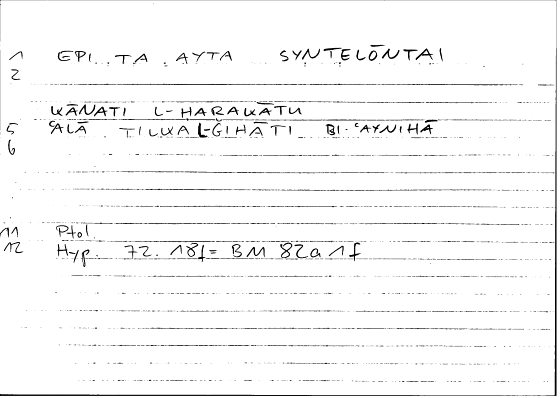 1 EPI TA AYTA SYNTELŌNTAI
2
KĀNATI L-HARAKĀTU
5 ʿALĀ TILKA L-ǦIHĀTI BI-ʿAYNIHĀ
6
11 Ptol.
12 Hyp. 72. 18f = BM 82a 1f